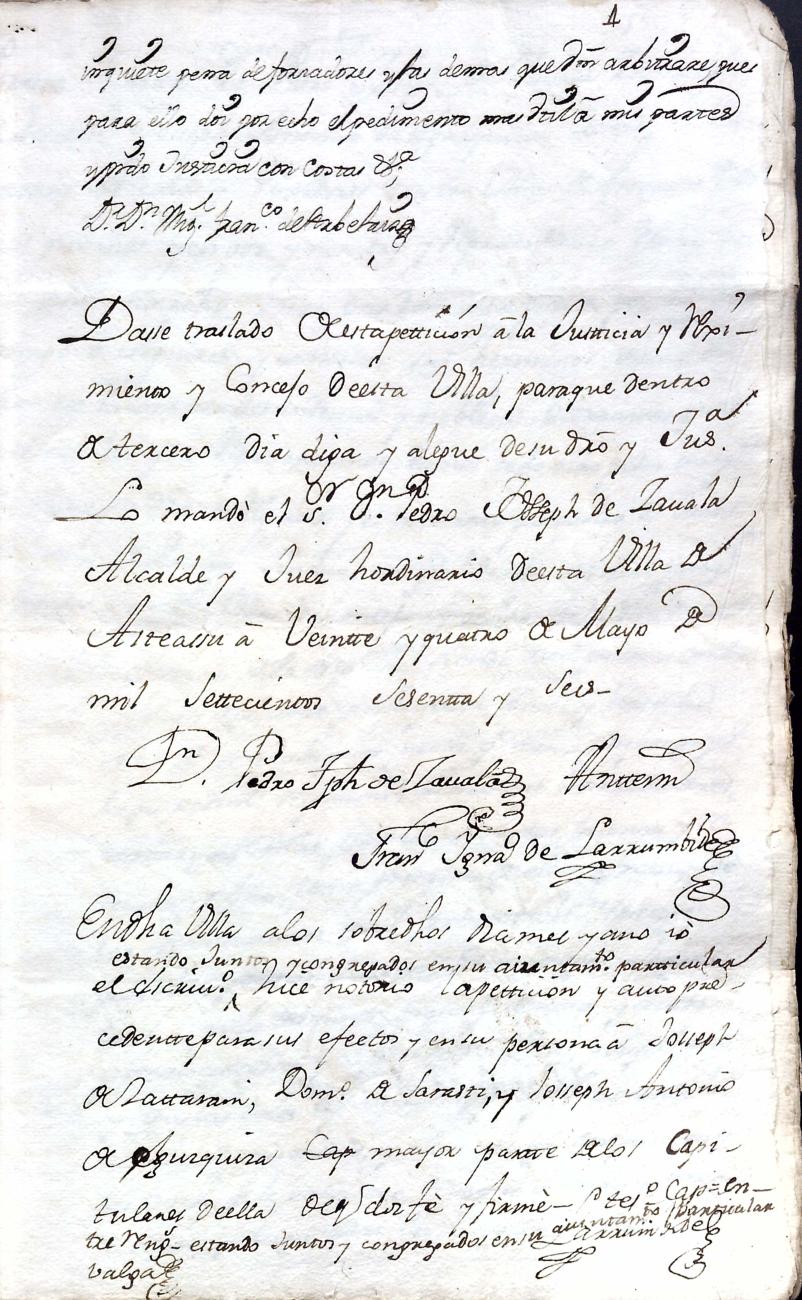 1
inquiete pena de forzadores y las demas que dro arbitrare, pues
para ello doi por echo el pedimento mas util â mis partes
y pido Justicia con costas &a,
Dr. Dn. Migl. Franco. de
Dasse traslado de esta pettición â la Justticia y Rexi-
miento y Concejo de esta Villa, para que dentro
de tercero dia diga y alegue de su dro y Jusa.
Lo mandò el sor. Dn. Pedro Joseph de Zavala
Alcalde y Juez hordinario de esta Villa de
Asteassu â Veintte y quatro de Mayo de
mil settecientos sesentta y seis-
Dn. Pedro Jph de Zavala Anttemi
Franco Ygnao de Larrumbide
En dha Villa a los sobredhos dia mes y año iô
estando Juntos y congregados en su aiuntamto. partticular
el escriuo. hice notorio la pettición y auto pre-
cedentte para sus efectos y en su persona â Josseph
de Lattarain, Domo. de Sarasti, y Josseph Antonio
de Ygurquiza Cap mayor partte de los Capi-
tulares de ella de q doi fè y firmè- tesdo Cap= en-
tre Reng- estando Juntos y congregados en su aiuntamto partticular
valga Larrumbide